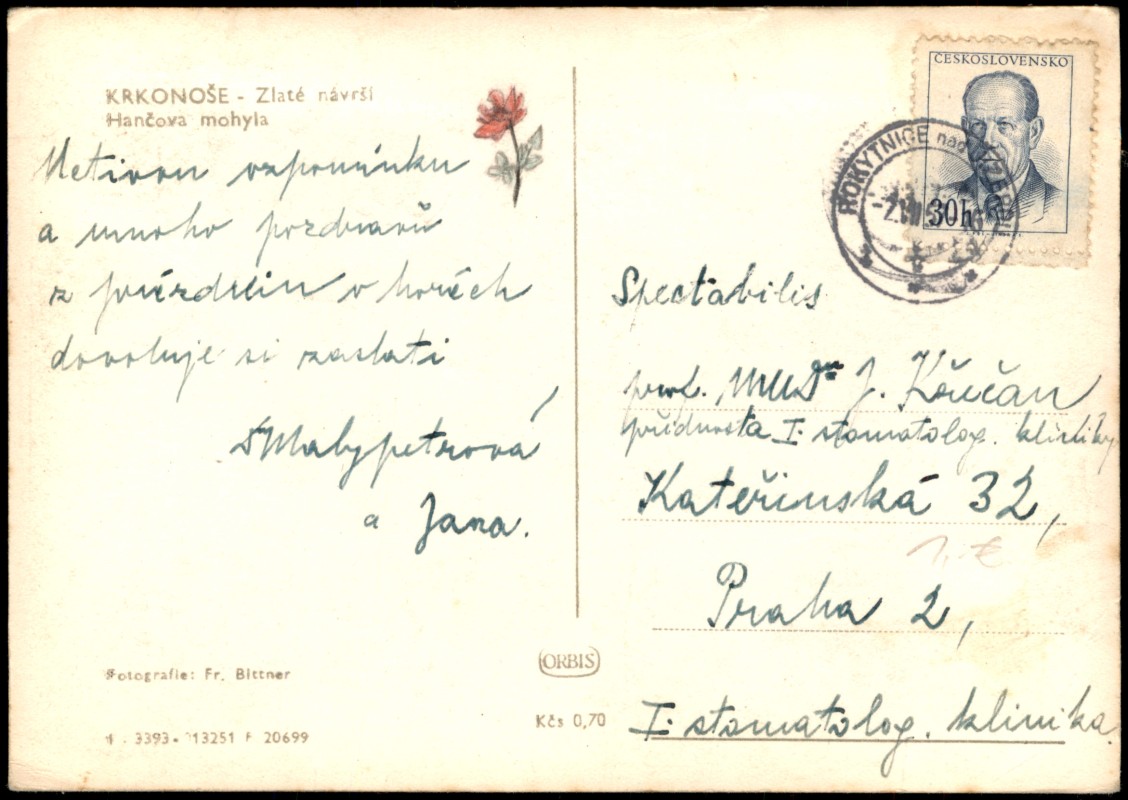 KRKONOŠE - Zlaté návrší
Hančova mohyla
Uctivou vzpomínku
a mnoho pozdravů
z prázdnin v horách
dovoluje si zaslati
Malypetrová
a Jana.
Fotografie: Fr. Bittner
3393 - 13251 F 20699
ORBIS
Kčs 0,70
ČESKOSLOVENSKO
30h
ROKYTNICE nad
Spectabilis
prof. MUDr J. Křečan
přednosta I. stomatolog. kliniky
Kateřinská 32,
1,- €
Praha 2,
I. stomatolog. klinika